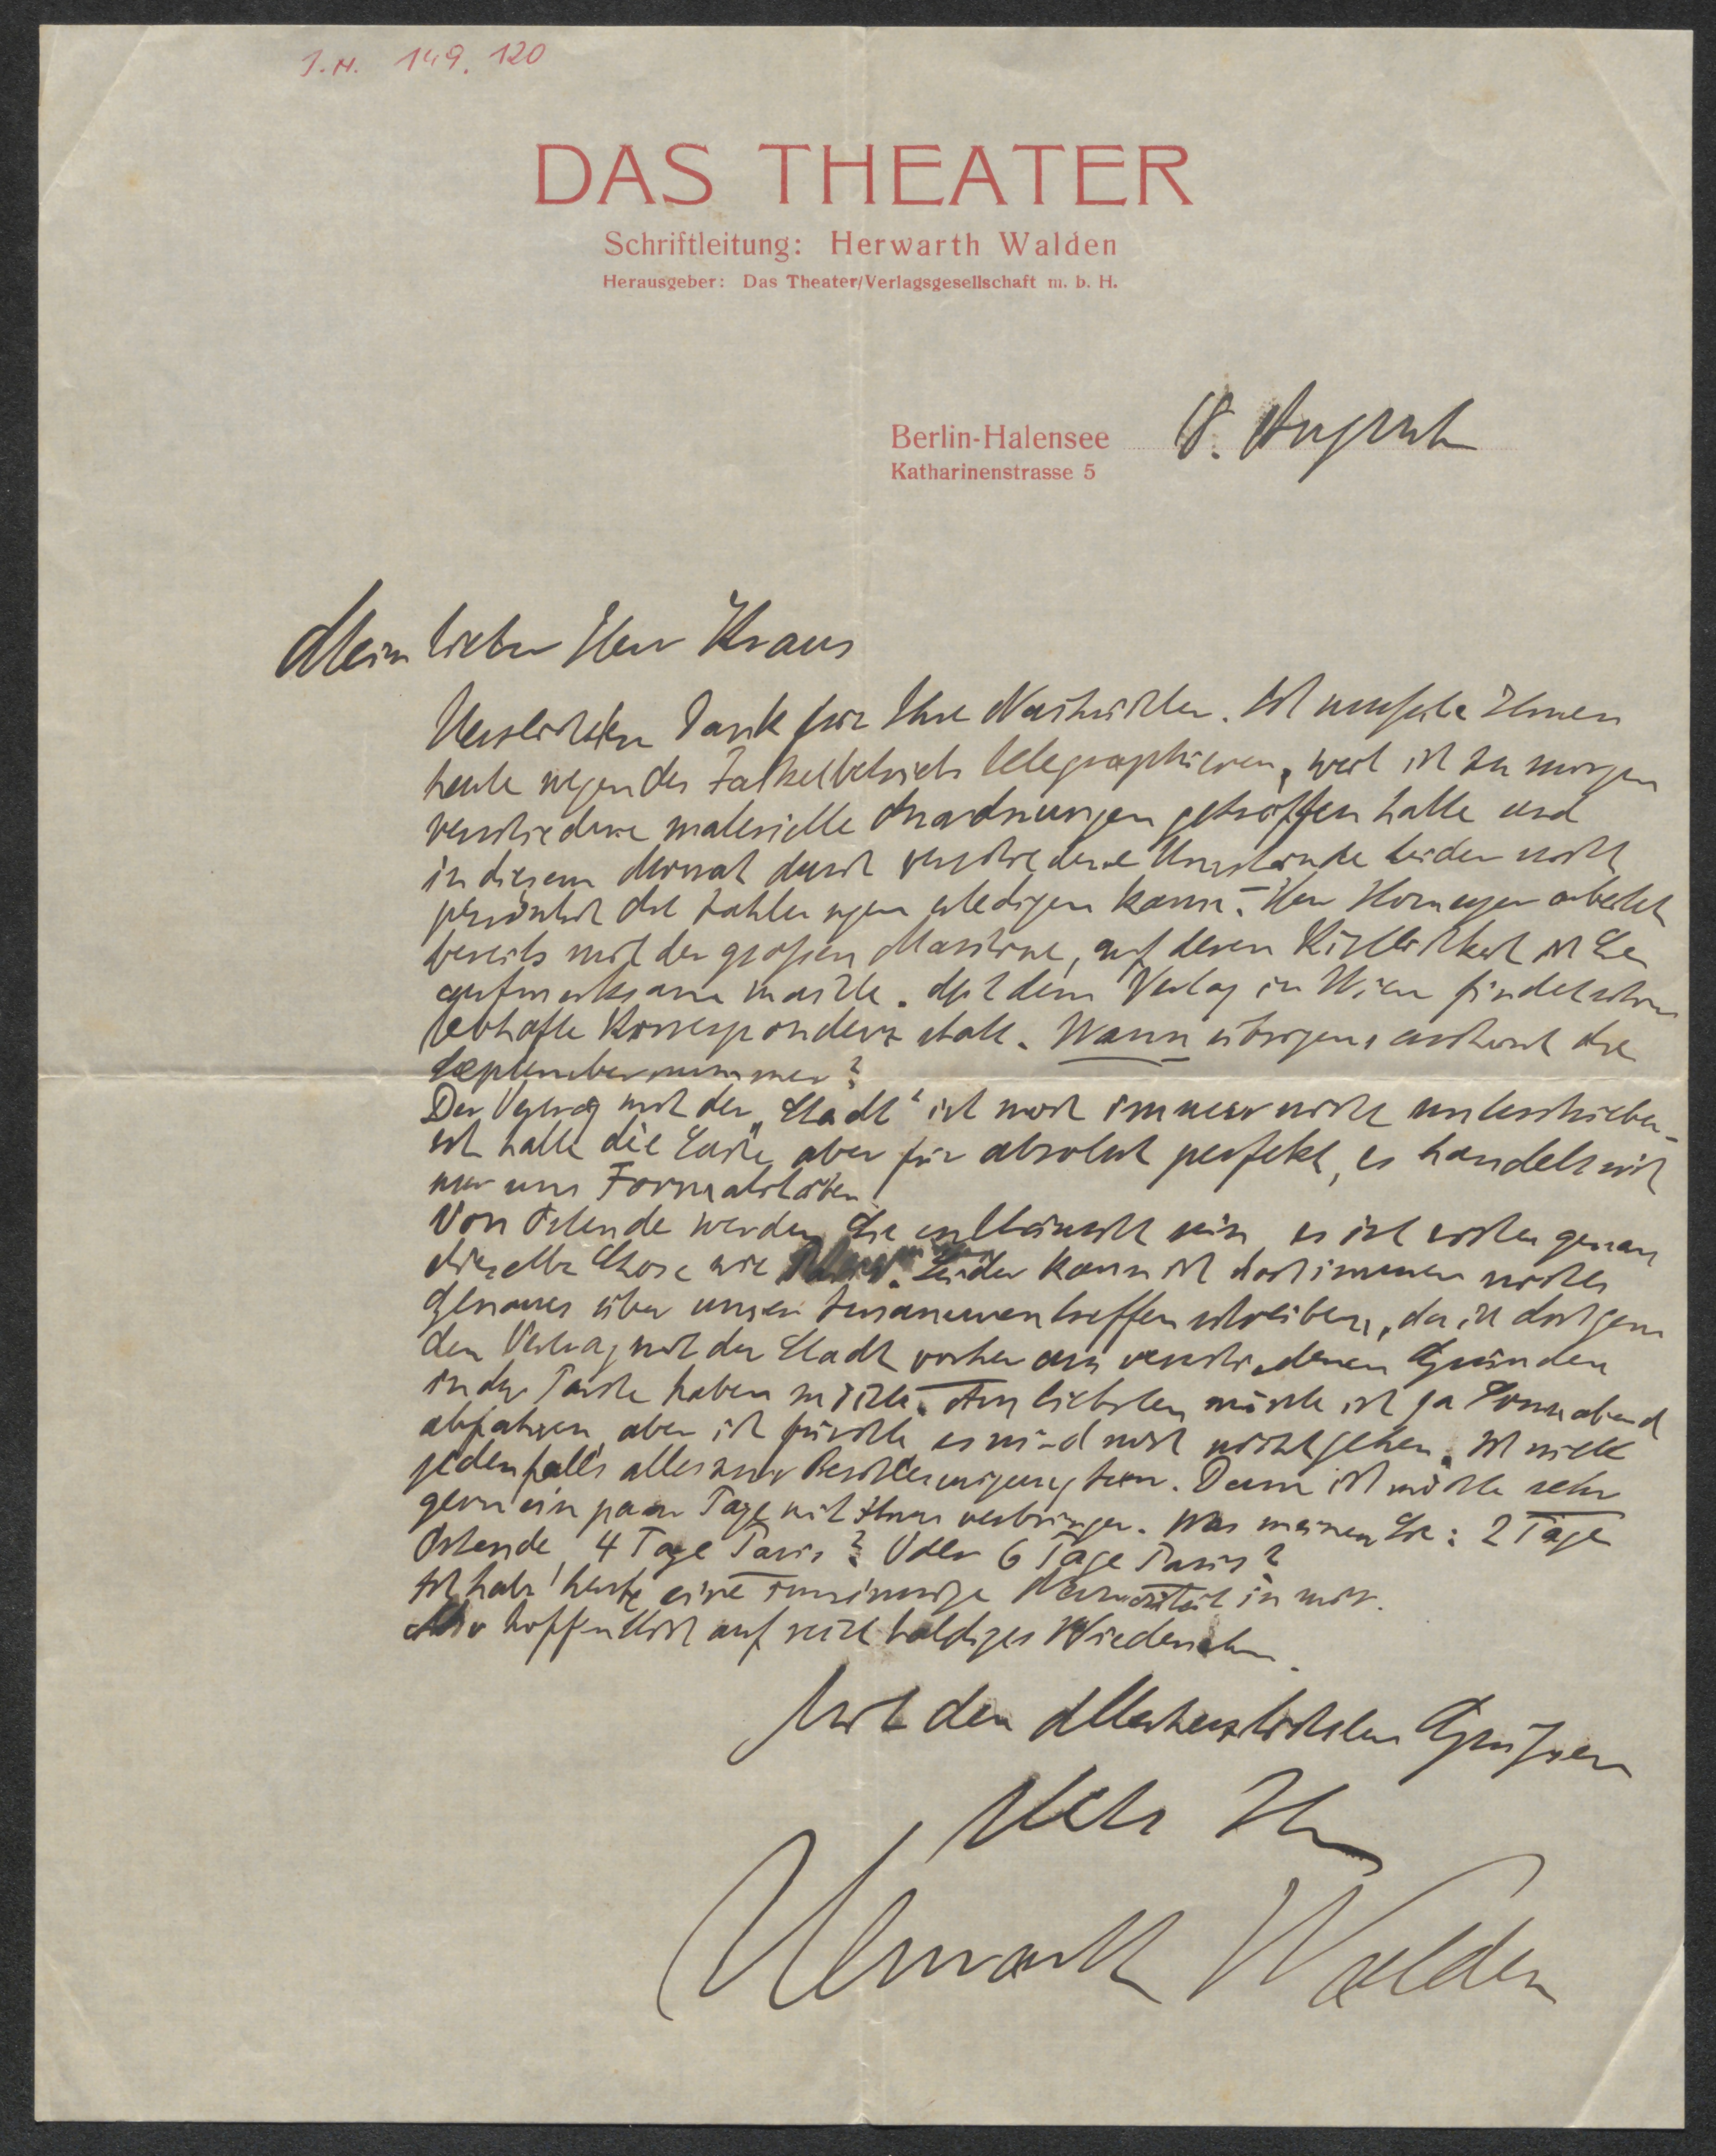 I.N. 149.120
DAS THEATER
Schriftleitung: Herwarth Walden
Herausgeber: Das Theater/Verlagsgesellschaft m. b. H.
Berlin-Halensee 18. August
Katharinenstrasse 5
Mein lieber Herr Kraus
Herzlichsten Dank für Ihre Nachrichten. Ich musste Ihnen
heute wegen des Fackelbetriebs telegraphieren, weil ich zu morgen
verschiedene materielle Anordnungen getroffen hatte und
in diesem Monat durch verschiedene Umstände leider nicht
persönlich die Zahlungen erledigen kann. – Herr arbeitet
bereits mit der grossen Maschine, auf deren ich Sie
aufmerksam machte. Mit dem Verlag in Wien findet schon
lebhafte Korrespondenz statt. Wann übrigens erscheint die
Septembernummer?
Der Vertrag mit der „Stadt“ ist noch immer nicht unterschrieben.
ich halte die Sache aber für absolut perfekt, es handelt sich
nur um Formalitäten.
Von Ostende werden Sie enttäuscht sein, es ist sicher genau
dieselbe Chose wie Leider kann ich noch immer nichts
genaues über unser Zusammentreffen schreiben, da ich doch gern
den Vertrag mit der Stadt vorher aus verschiedenen Gründen
in der Tasche haben möchte. Am liebsten möchte ich ja Sonnabend
abfahren, aber ich fürchte es wird noch nicht gehen. Ich will
jedenfalls alles zur Beschleunigung tun. Denn ich möchte sehr
gern ein paar Tage mit Ihnen verbringen. Was meinen Sie: 2 Tage
Ostende, 4 Tage Paris? Oder 6 Tage Paris?
Ich habe heute eine unsinnige Nervosität in mir.
Also hoffentlich auf recht baldiges Wiedersehn.
Mit den allerherzlichsten Grüssen
stets Ihr
Herwarth Walden